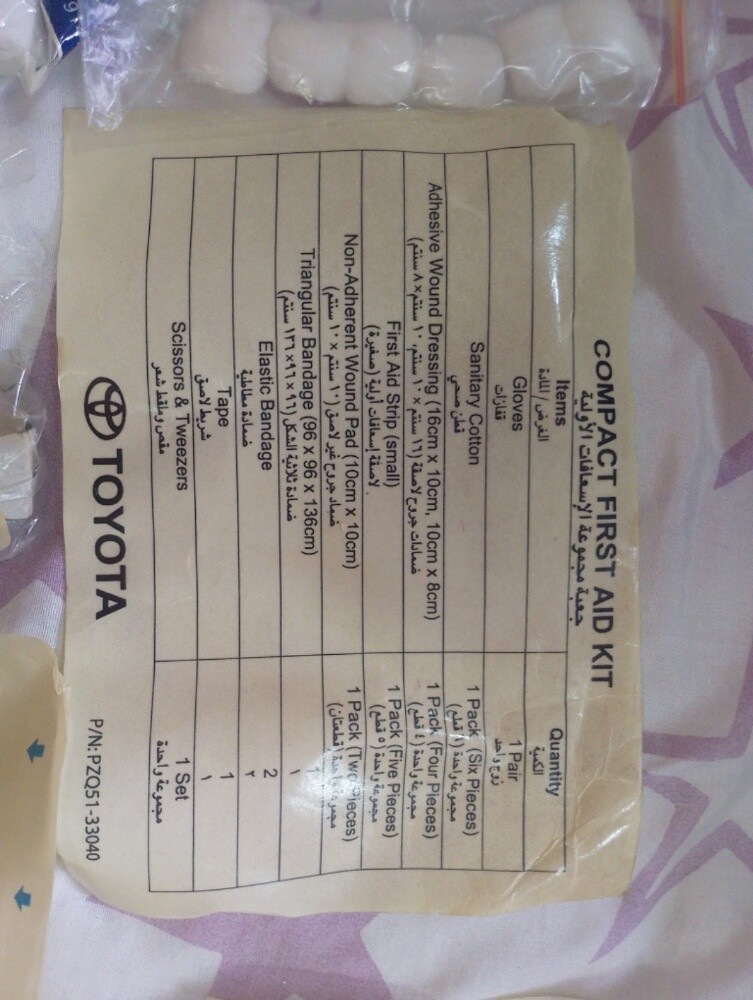 COMPACT FIRST AID KIT
جعبة مجموعة الإسعافات الأولية
Items
الغرض / المادة
Quantity
الكمية
Gloves
قفازات
1 Pair
زوج واحد
Sanitary Cotton
قطن صحي
1 Pack (Six Pieces)
مجموعة واحدة (٦ قطع)
Adhesive Wound Dressing (16cm x 10cm, 10cm x 8cm)
ضمادات جروح لاصقة (١٦ سنتم × ١٠ سنتم، ١٠ سنتم × ٨ سنتم)
1 Pack (Four Pieces)
مجموعة واحدة (٤ قطع)
First Aid Strip (small)
لاصقة إسعافات أولية (صغيرة)
1 Pack (Five Pieces)
مجموعة واحدة (٥ قطع)
Non-Adherent Wound Pad (10cm x 10cm)
ضماد جروح غير لاصق (١٠ سنتم × ١٠ سنتم)
1 Pack (Two Pieces)
مجموعة واحدة (قطعتان)
Triangular Bandage (96 x 96 x 136cm)
ضمادة ثلاثية الشكل (٩٦ × ٩٦ × ١٣٦ سنتم)
1
١
Elastic Bandage
ضمادة مطاطية
2
٢
Tape
شريط لاصق
1
١
Scissors & Tweezers
مقص وملقط شعر
1 Set
مجموعة واحدة
TOYOTA
P/N: PZQ51-33040